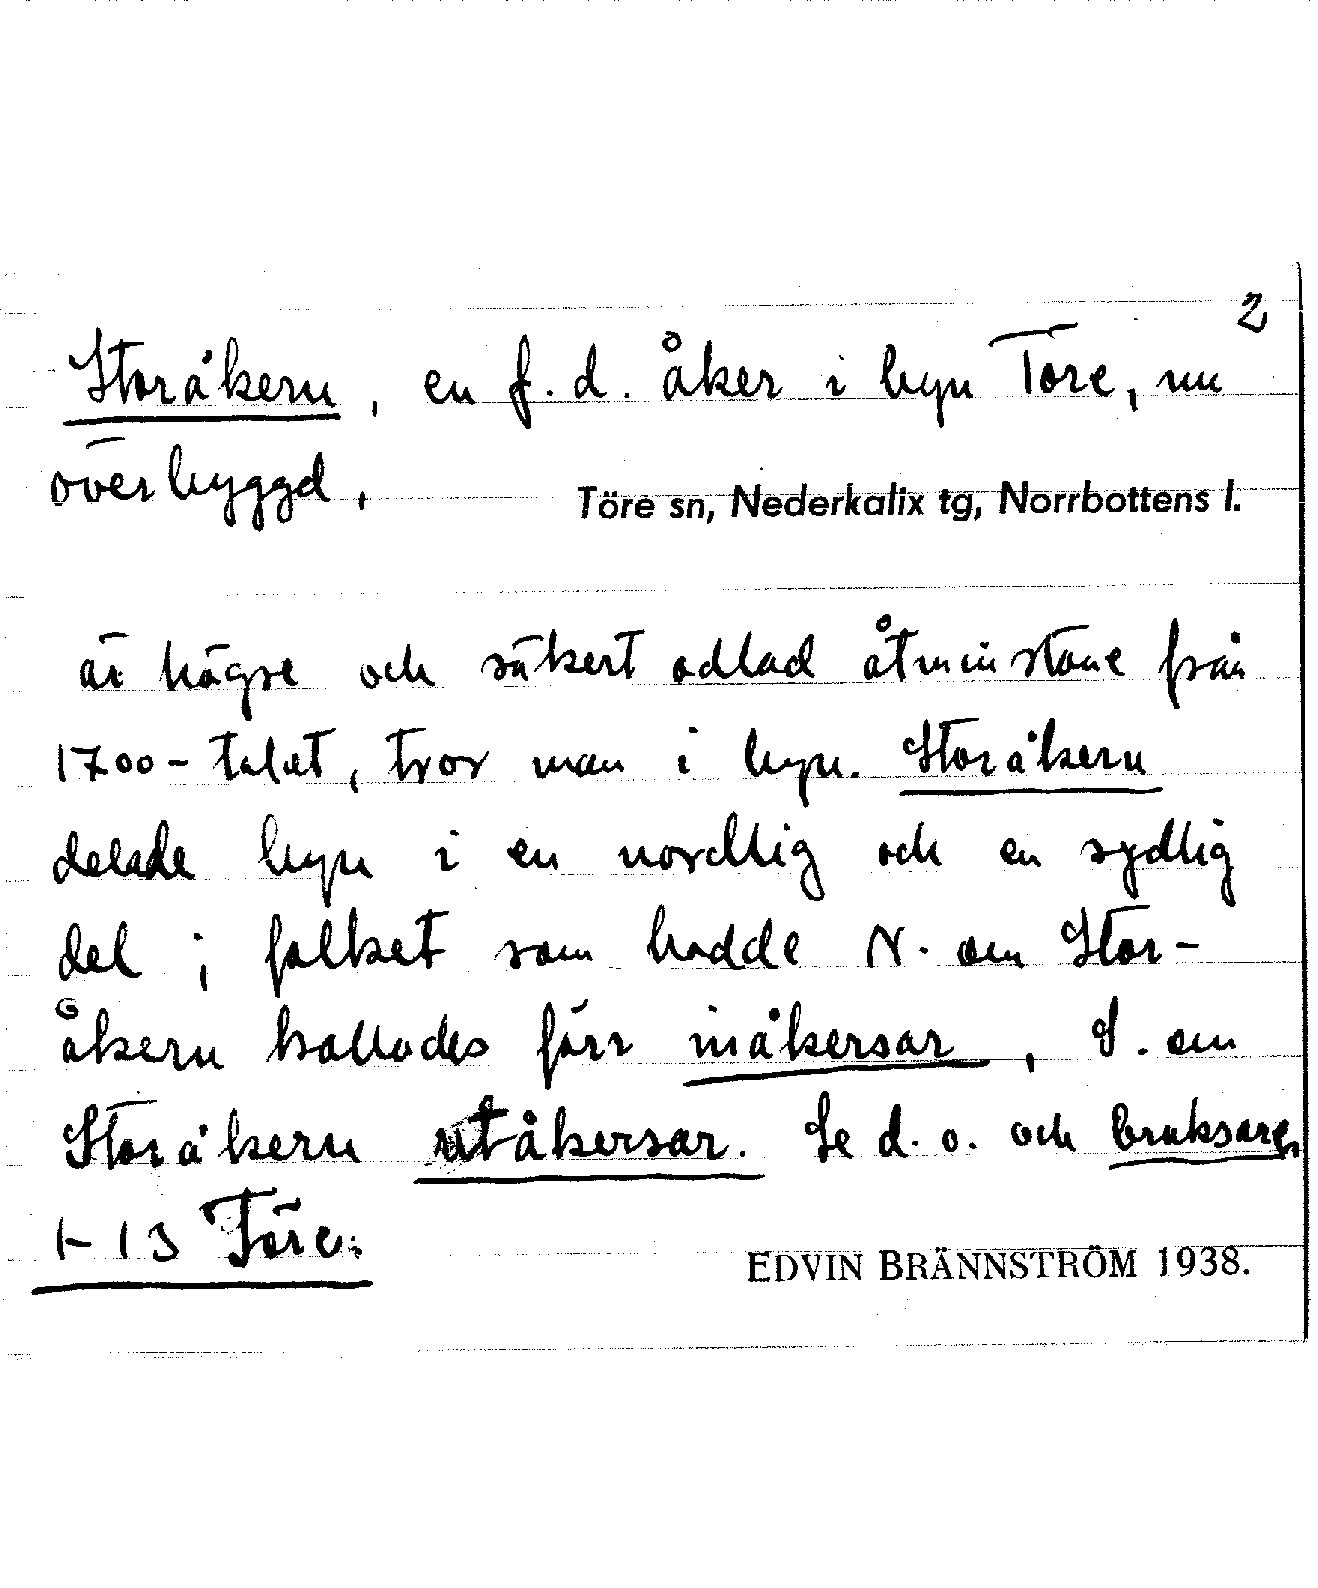 2
Storåkern, en f.d. åker i byn Töre, nu
överbyggd,
Töre sn, Nederkalix tg, Norrbottens l.
är högre och säkert odlad åtminstone från
1700-talet, tror man i byn. Storåkern
delade byn i en nordlig och en sydlig
del; folket som hadde N. om Stor-
åkern kallades förr inåkersar, S. om
Storåkern utåkersar. Se d.o. och bruksare,
1-13 Töre.
EDVIN BRÄNNSTRÖM 1938.